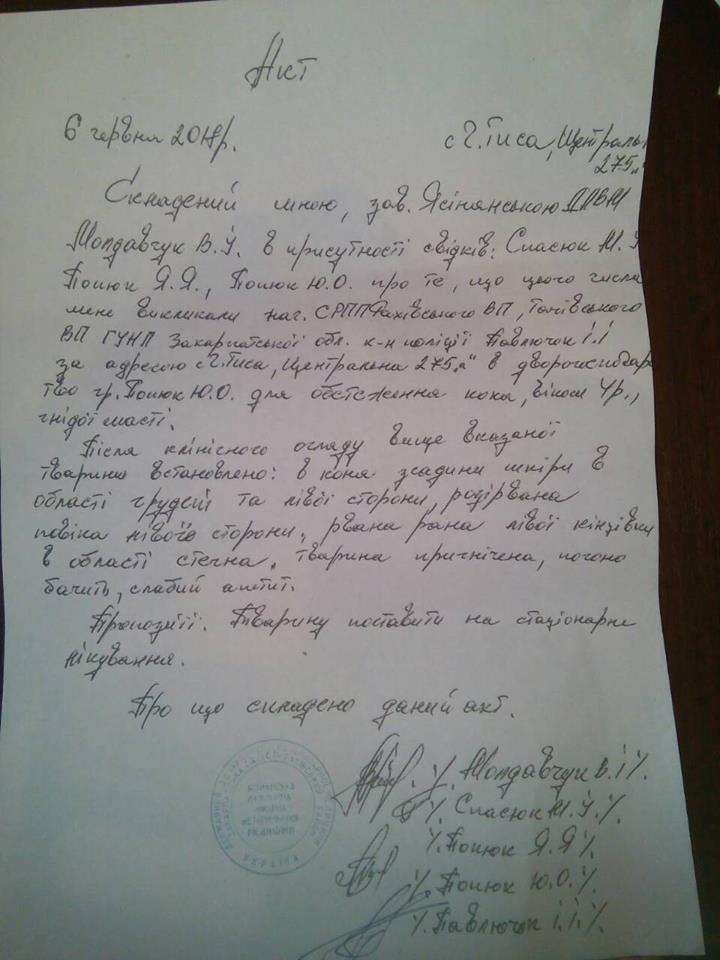 Акт
6 червня 2017р. с Ч.Тиса, Централь
275 „а"
Складений мною, зав. Ясінянською ДПВМ
Молдавчук В.І. в присутності свідків: Спасюк М.У
Попюк Я.Я., Попюк Ю.О. про те, що цього числа
мене викликали наг. СРПП Рахівського ВП, Тячівського
ВП ГУНП Закарпатської обл. к-н поліції Павлючок І.І
за адресою с Ч.Тиса, Центральна 275 „а" в
гр. Попюк Ю.О. для обстеження коня, віком 4р.,
гнідої масті.
Після клінісного огляду вище вказаної
тварини встановлено: в коня згадини шкіри в
області грудей та лівої сторони, розірвана
повіка лівого сторони, рвана рана лівої кінцівки
в області стегна. тварина пригнічена, погано
бачить, слабий апетит.
Пропозиції. Тварину поставити на стаціонарне
лікування.
Про що складено даний акт.
Молдавчук В.І.
Спасюк М.У.
Попюк Я.Я
Попюк Ю.О.
Павлючок І.І.
УКРАЇНА